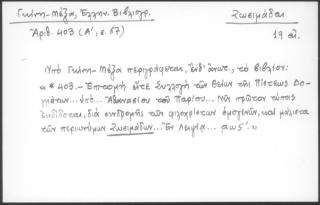 Γκίνη-Μέξα, Ἑλλην. Βιβλιογρ.
Ζωσιμάδαι
Ἀριθ. 403 (Α', σ. 67)
19 αἰ.
Ὑπό Γκίνη-Μέξα περιγράφεται, ἔνθ' ἀνωτ., τό βιβλίον:
«*403.- Ἐπιτομή εἴτε Συλλογή τῶν θείων τῆς Πίστεως Δο-
γμάτων... ὑπό... Ἀθανασίου τοῦ Παρίου... Νῦν πρῶτον τύποις
ἐκδίδοται, διά συνδρομῆς τῶν φιλοχρίστων ὁμογενῶν, καί μάλιστα
τῶν περιωνύμων Ζωσιμάδων... Ἐν Λειψίᾳ... αως'.»